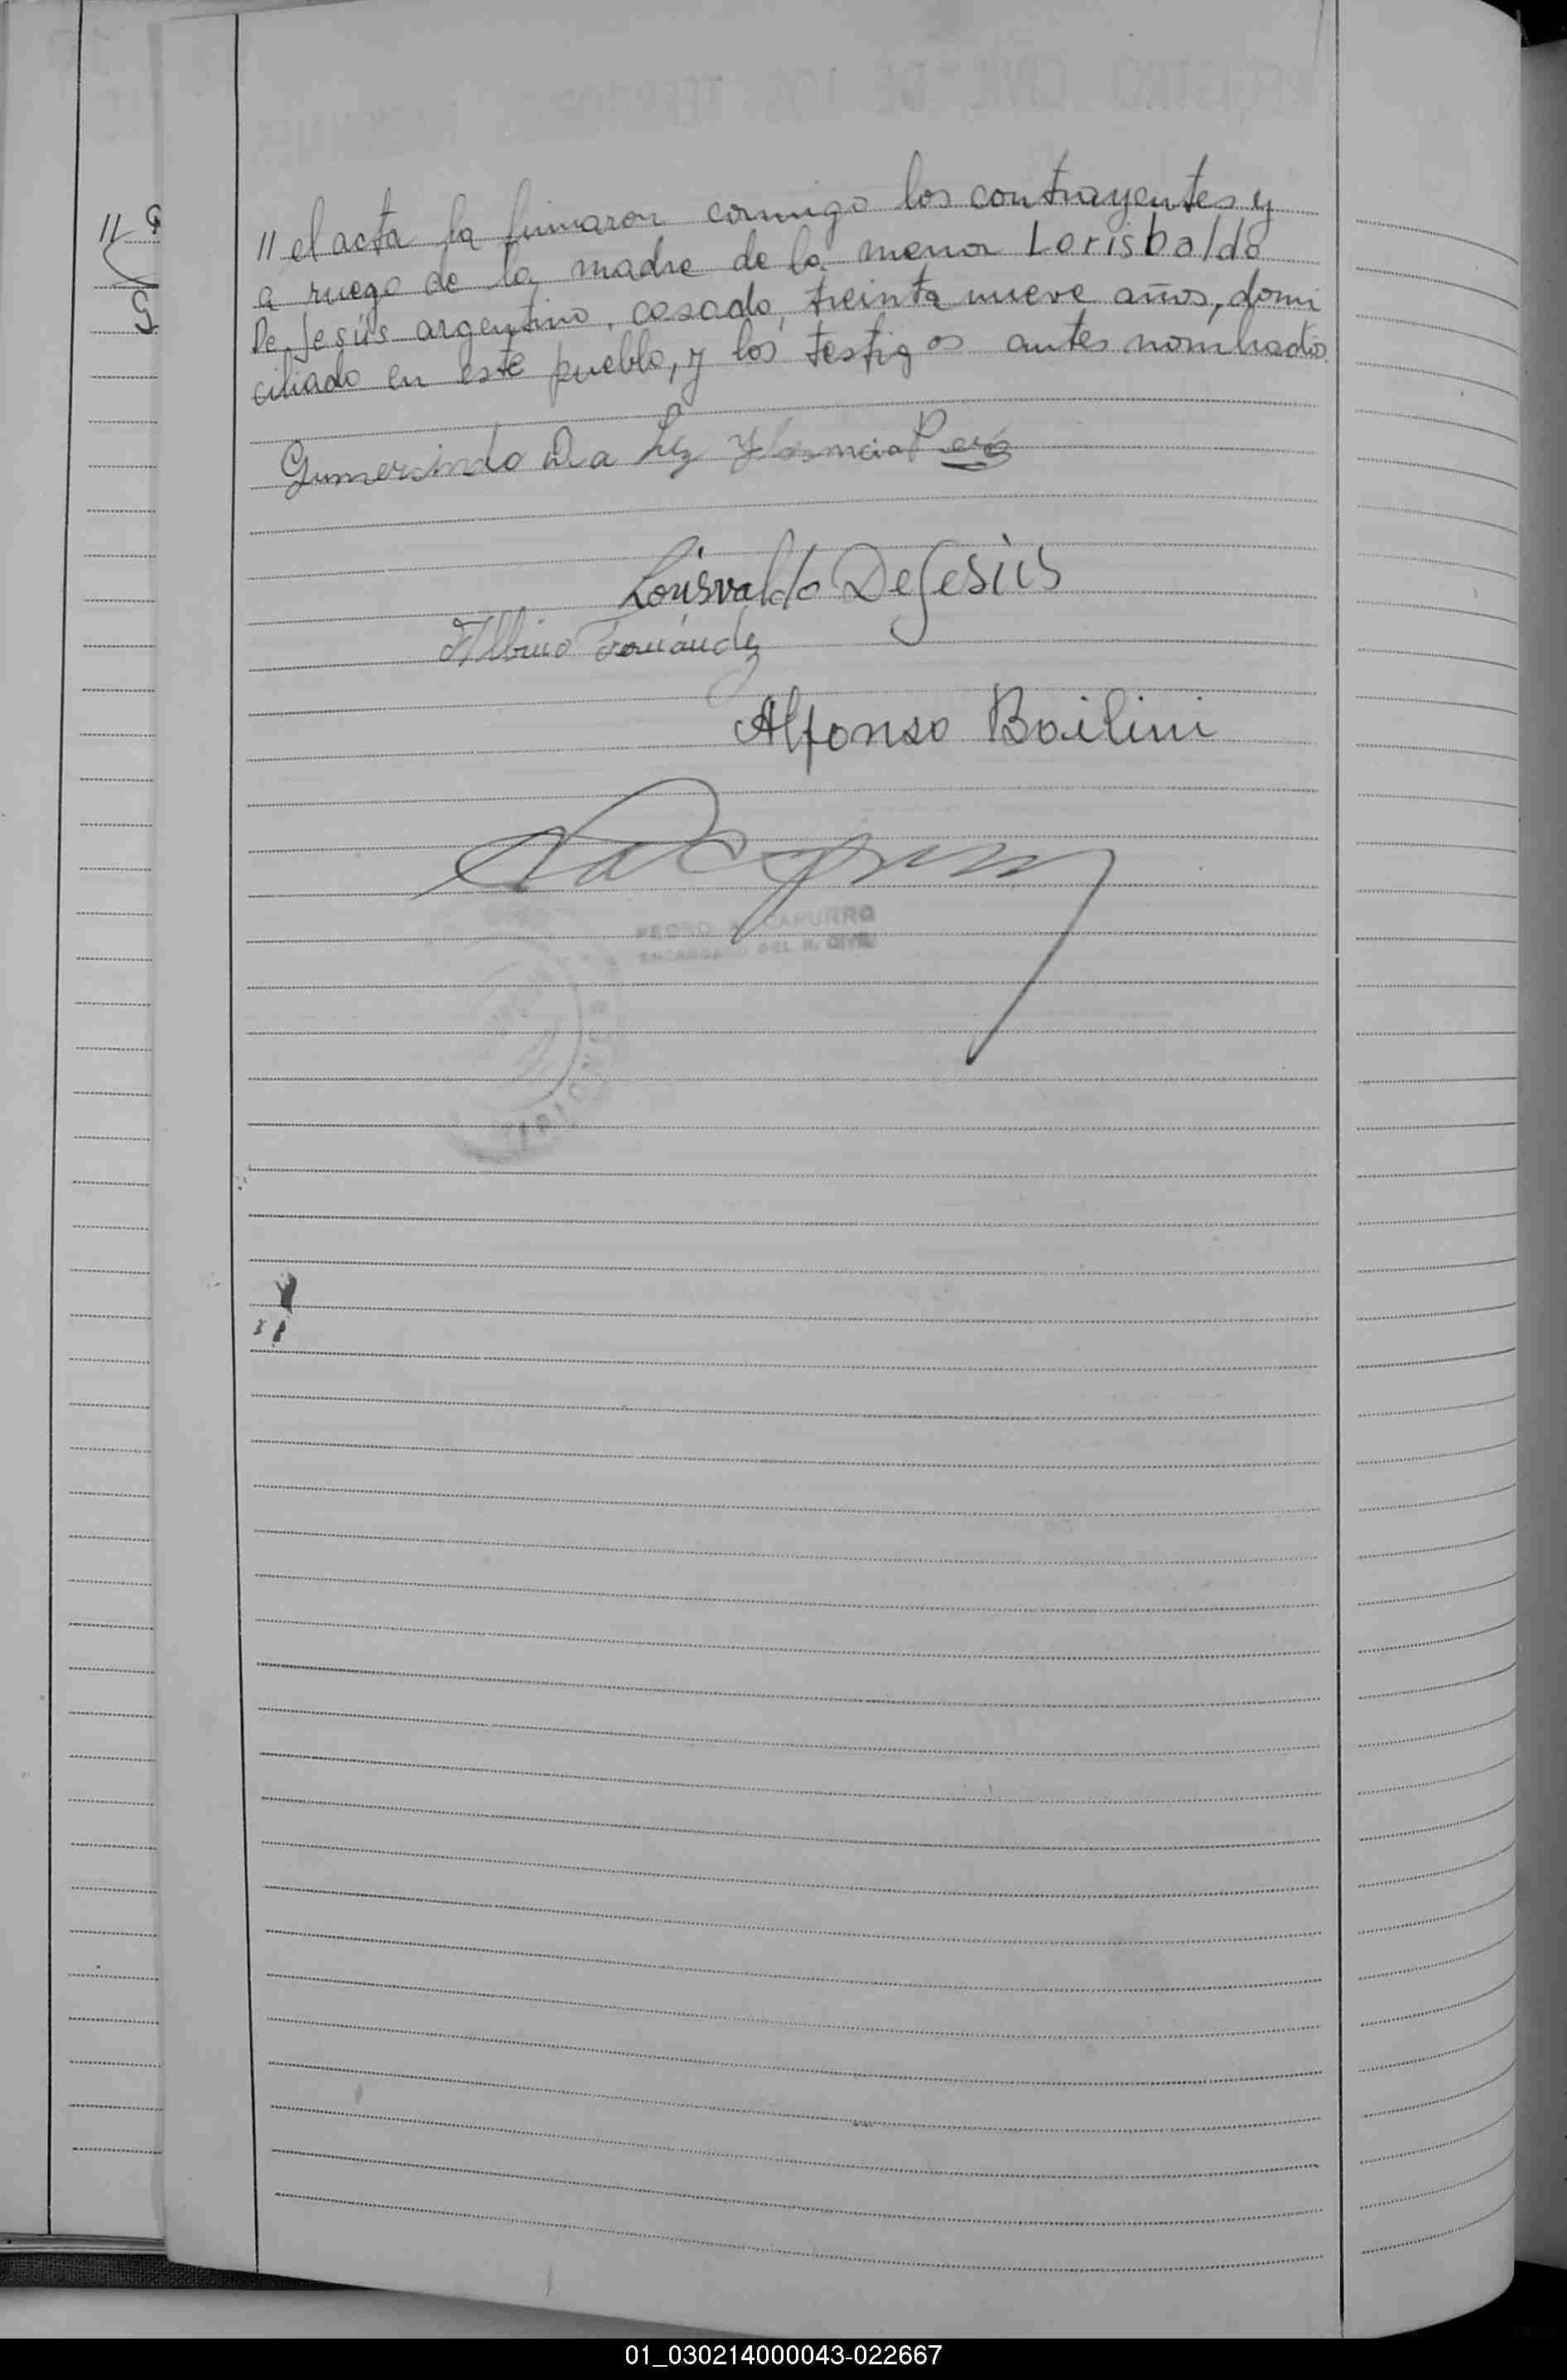 // el acta la firmaron conmigo los contrayentes y
a ruego de la madre de la menor Lorisbaldo
De Jesús argentino, casado, treinta nueve años, domi
ciliado en este pueblo, y los testigos antes nombrados.
Gumersindo
Lorisvaldo DeJesús
Albino Fernández
Alfonso Boilini
PEDRO A. CAPURRO
ENCARGADO DEL R. CIVIL
01_030214000043-022667